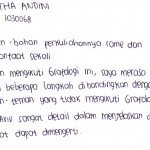 THA ANDINI
1030068
n - bahan perkuliahannya rame dan
ontaat sekali.
n mengikuti Grafologi ini, saya merasa
beberapa langkah dibandingkan dengan
n - teman yang tidak mengikuti Grafologi
sangat detail dalam menjelaskan d
at dapat dimengerti.